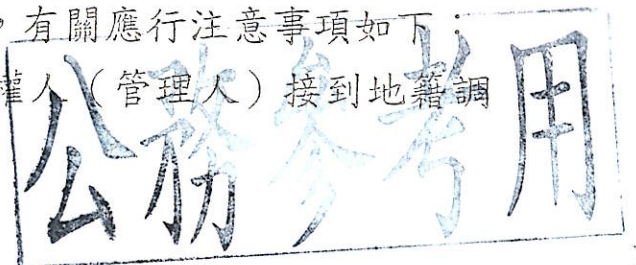 ，有關應行注意事項如下：
權人（管理人）接到地籍調
公務參考用